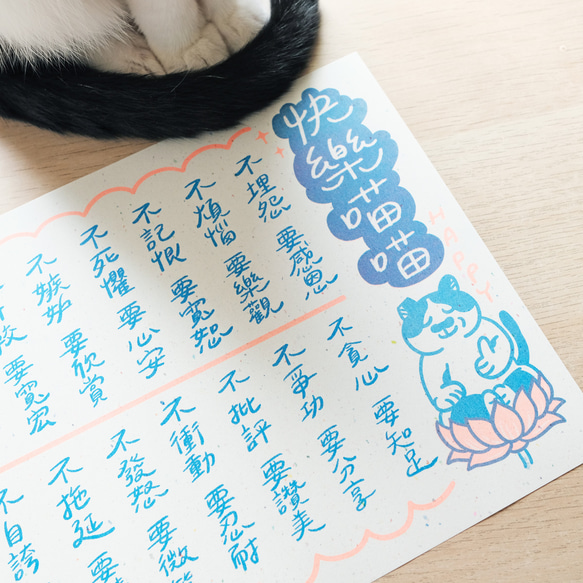 快樂喵喵
HAPPY
不埋怨 要感恩
不煩惱 要樂觀
不記恨 要寬恕
不死懼 要心安
不嫉妬 要欣賞
要寬宏
不貪心 要知足
不爭功 要分享
不批評 要讚美
不衝動 要忍耐
不發怒 要微
不拖延 要
不自誇